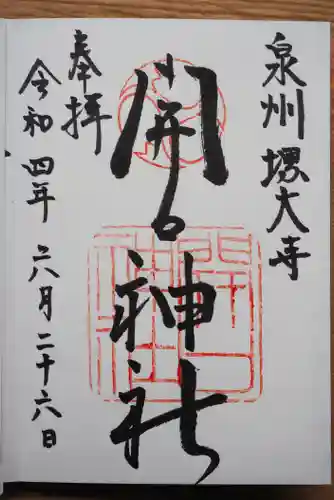 泉州堺大寺
奉拝
開口神社
令和四年六月二十六日
開口神社